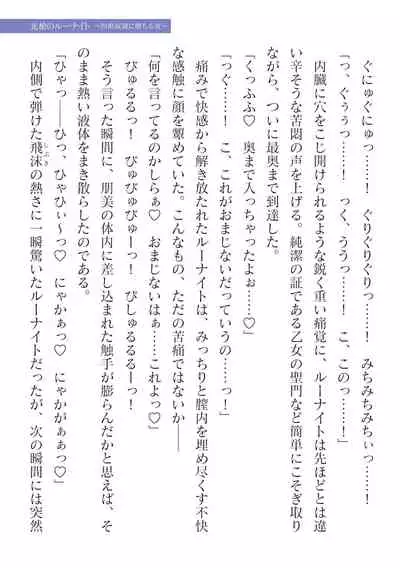 光槍のルーナイト
ぐにゅぐにゅっ……！　ぐりぐりぐりっ……！　みちみちみちぃっ……！
「っ、ぐぅぅっ……！　っく、ううっ……！　こ、このっ……！」
内臓に穴をこじ開けられるような鋭く重い痛覚に、ルーナイトは先ほどとは違
い辛そうな苦悶の声を上げる。純潔の証である乙女の聖門など簡単にこそぎ取り
ながら、ついに最奥まで到達した。
「くっふふ♡　奥まで入っちゃったよぉ……♡」
「っぐ……！　こ、これがおまじないだっていうの……っ！」
痛みで快感から解き放たれたルーナイトは、みっちりと膣内を埋め尽くす不快
な感触に顔を顰めていた。こんなもの、ただの苦痛ではないか――
「何を言ってるのかしらぁ♡　おまじないはぁ……これよっ♡」
びゅるるっ！　びゅびゅびゅーっ！　びしゅるるるーっ！
そう言った瞬間に、朋美の体内に差し込まれた触手が膨らんだかと思えば、そ
のまま熱い液体をまき散らしたのである。
「ひゃっ――ひっ、ひゃひぃ～っ♡　にゃかぁっ♡　にゃかがぁぁっ♡」
内側で弾けた飛沫の熱さに一瞬驚いたルーナイトだったが、次の瞬間には突然